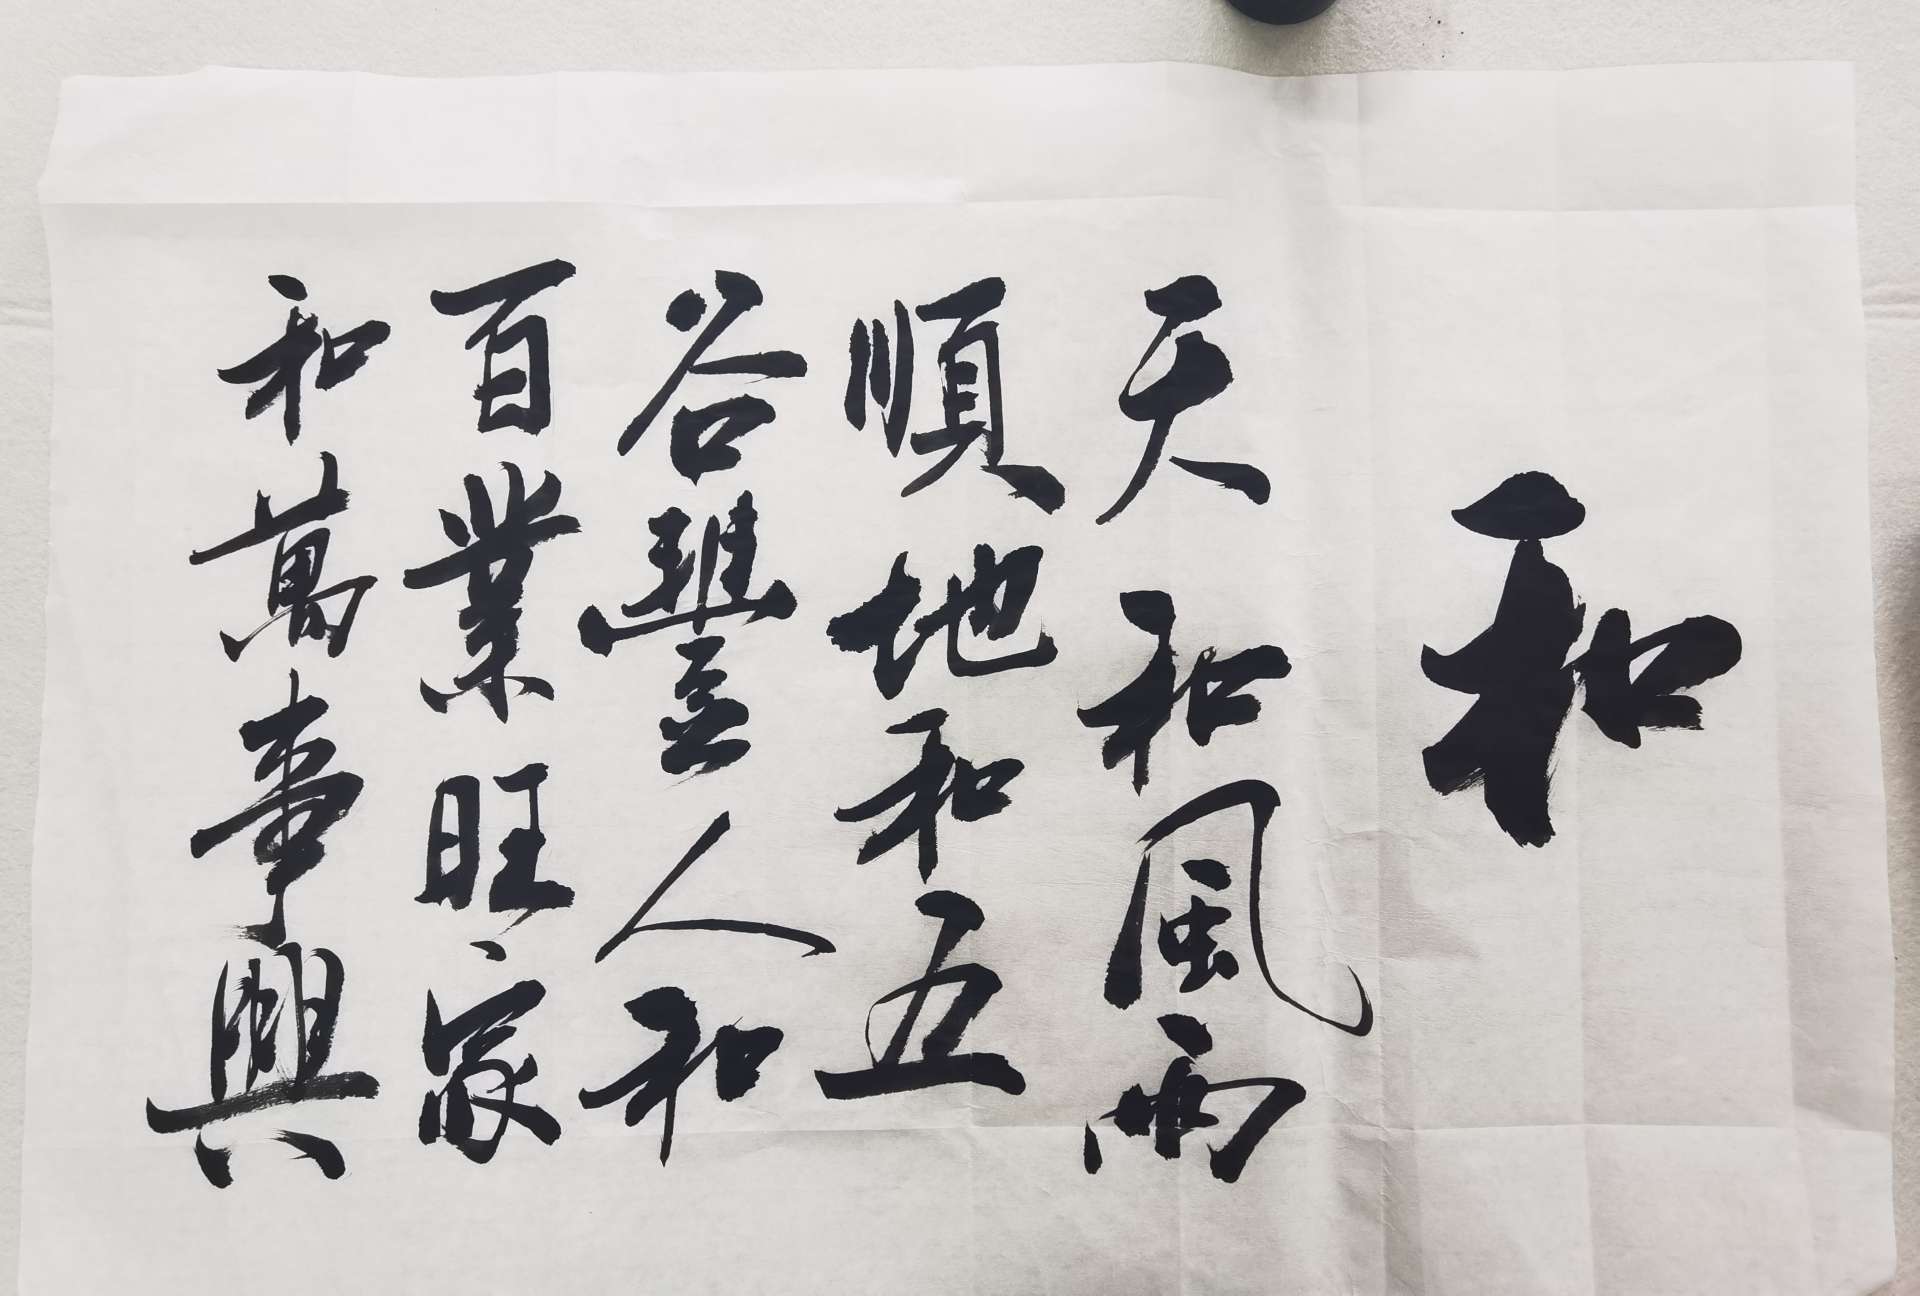 和
天和風雨
順地和五
谷豐人和
百業旺家
和萬事興